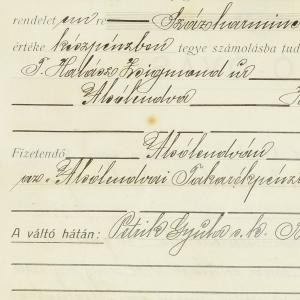 rendelet em re Százharminc
értéke készpénzben tegye számolásba tud
T. Halász Zsigmond úr
Alsólendva
Fizetendő Alsólendván
az Alsólendvai Takarékpénz
A váltó hátán: Petrik Gyula s. k.